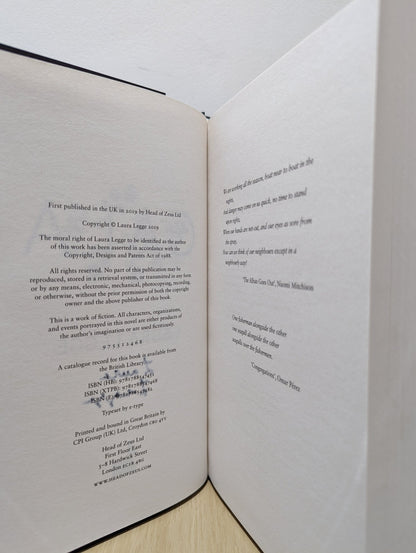 First published in the UK in 2019 by Head of Zeus Ltd
Copyright © Laura Legge 2019
The moral right of Laura Legge to be identified as the author
of this work has been asserted in accordance with the
Copyright, Designs and Patents Act of 1988.
All rights reserved. No part of this publication may be
reproduced, stored in a retrieval system, or transmitted in any form
or by any means, electronic, mechanical, photocopying, recording,
or otherwise, without the prior permission of both the copyright
owner and the above publisher of this book.
This is a work of fiction. All characters, organizations,
and events portrayed in this novel are either products of
the author's imagination or are used fictitiously.
9 7 5 3 1 2 4 6 8
A catalogue record for this book is available from
the British Library.
ISBN (HB):
ISBN (XTPB):
ISBN (E):
Typeset by e-type
Printed and bound in Great Britain by
CPI Group (UK) Ltd, Croydon CR0 4YY
Head of Zeus Ltd
First Floor East
5–8 Hardwick Street
London EC1R 4RG
WWW.HEADOFZEUS.COM
We are working all the season, boat near to boat in the
nights,
And danger may come on us quick, no time to stand
upon rights,
When our hands are net-cut, and our eyes are sore from
the spray,
Nor can we think of our neighbours except in a
neighbourly way!
'The Alban Goes Out', Naomi Mitchison
One fisherman alongside the other
one seagull alongside the other
seagulls over the fishermen.
'Congregations', Omar Pérez